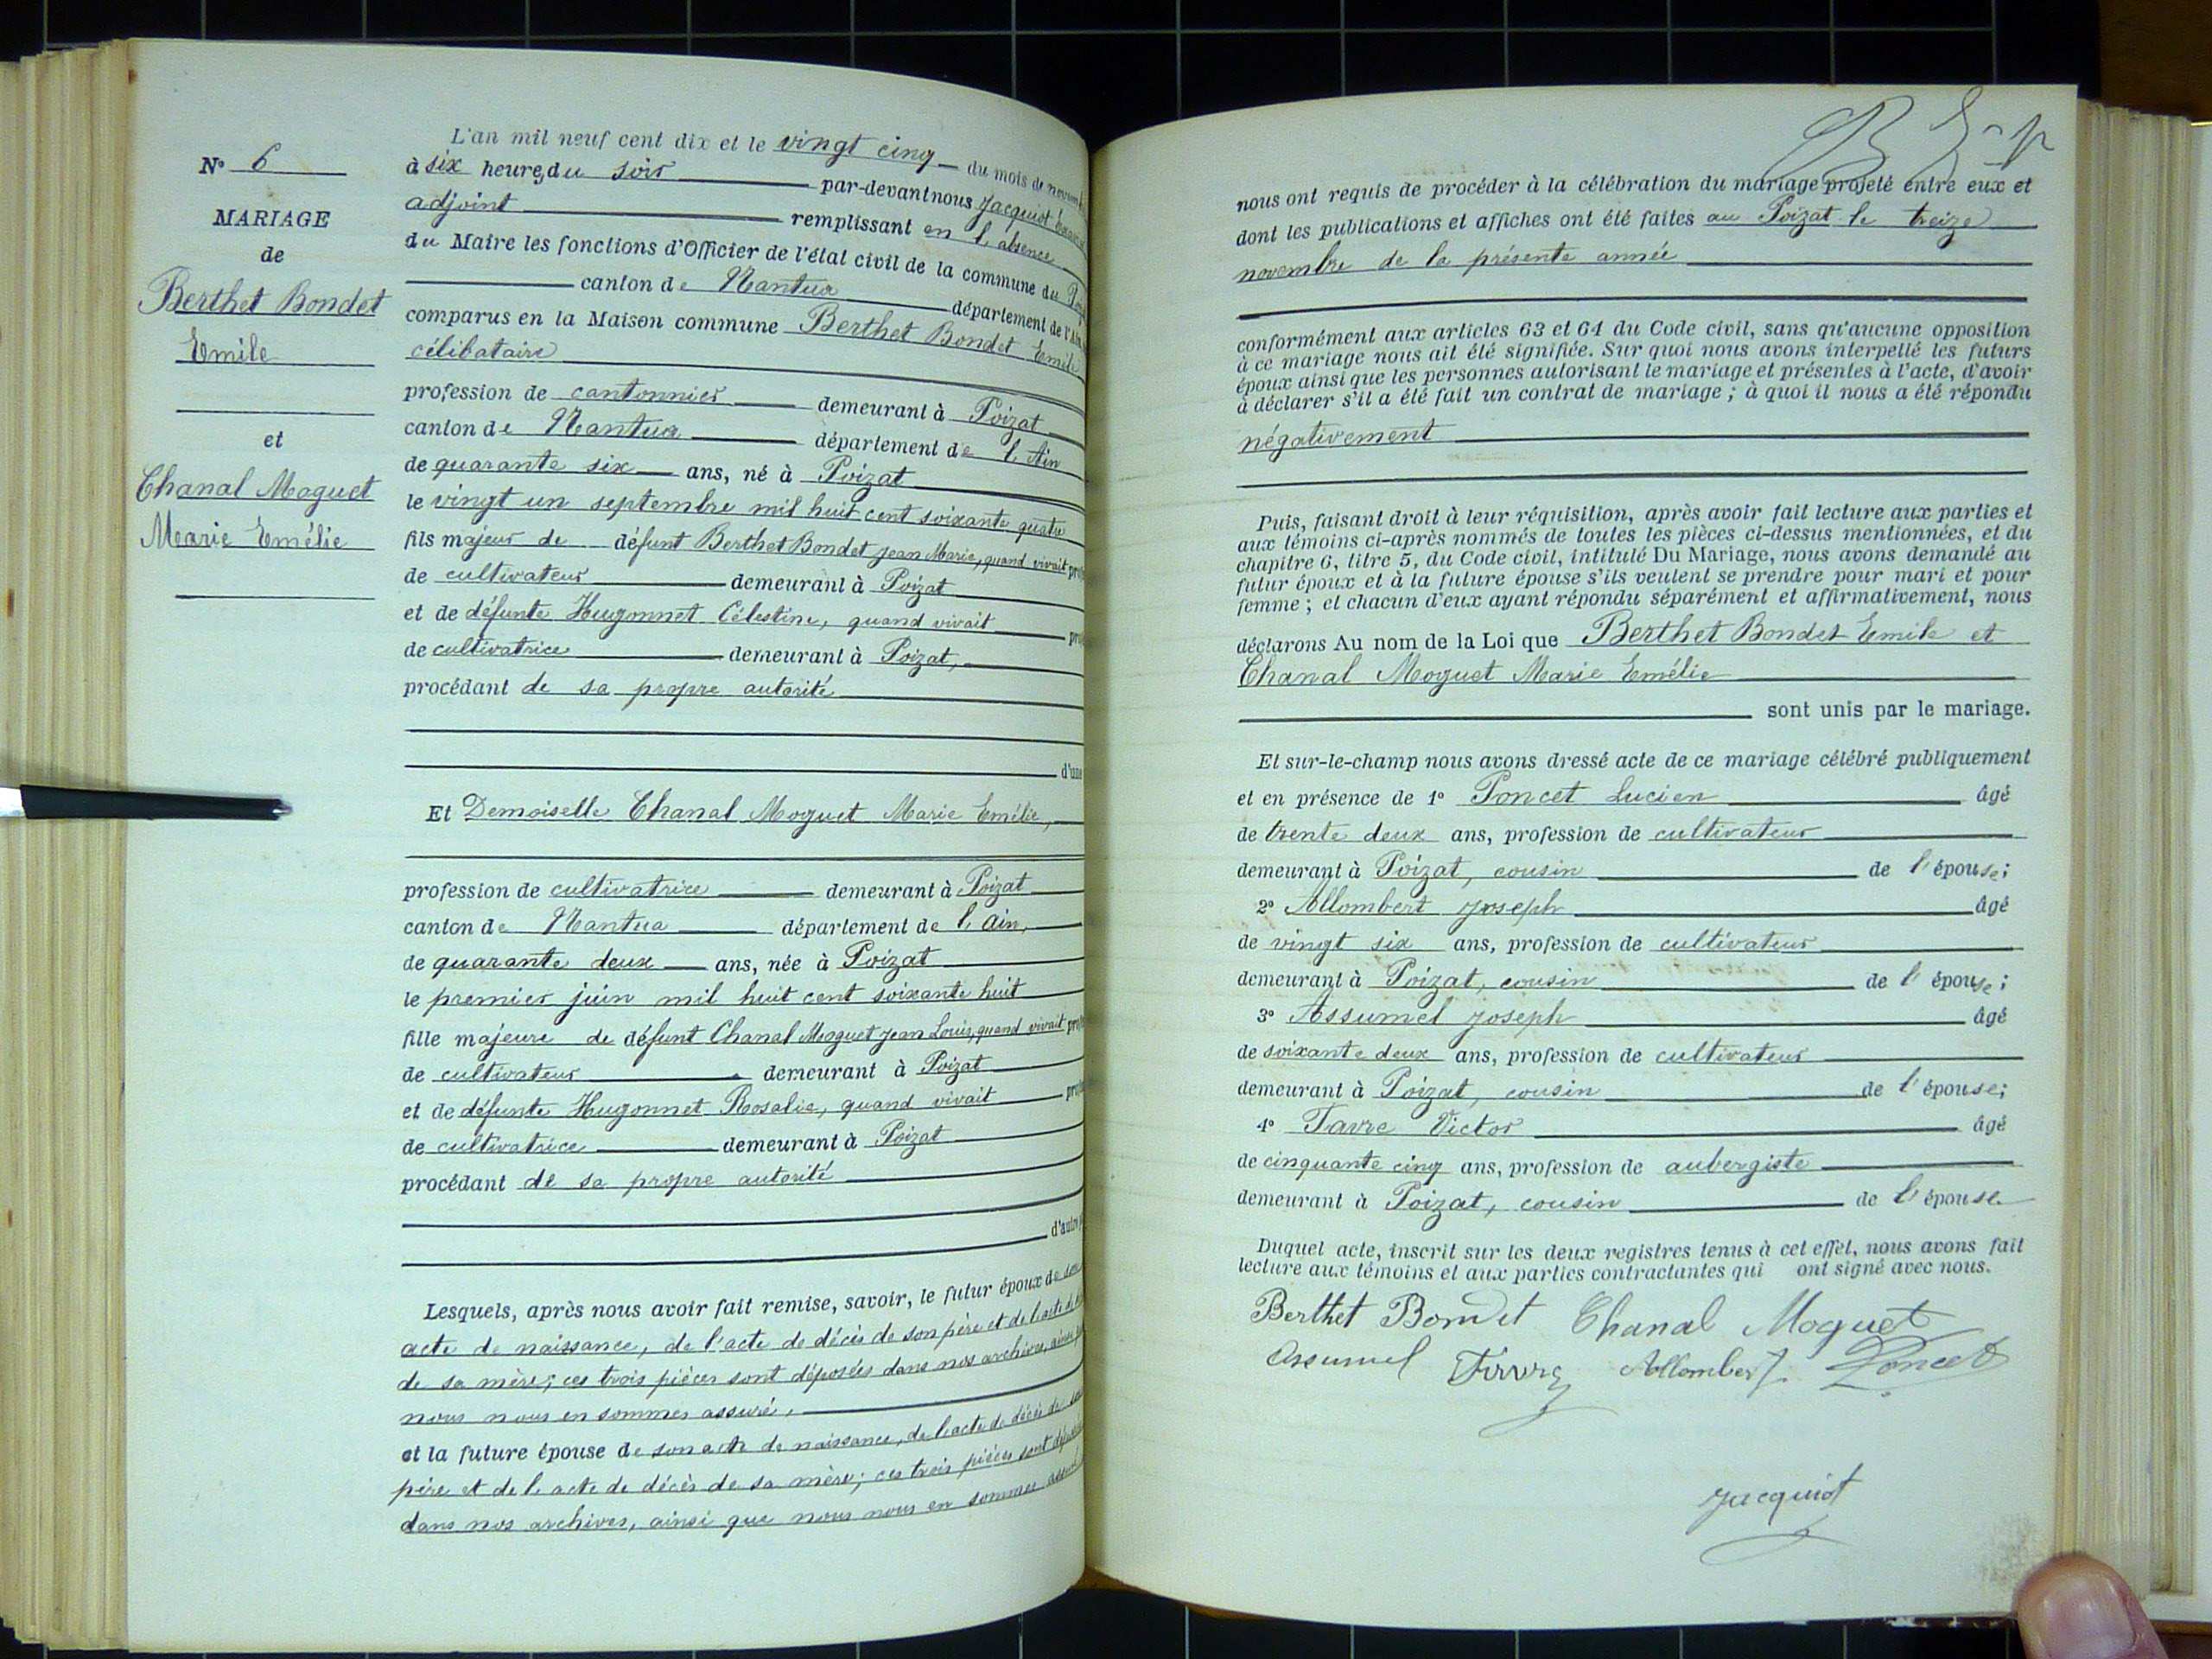 N° 6
MARIAGE
de
Berthet Bondet
Emile
et
Chanal Moguet
Marie Emélie
L'an mil neuf cent dix et le vingt cinq du mois de
à six heures du soir par-devant nous Jacquiot
adjoint remplissant en l'absence
du Maire les fonctions d'Officier de l'état civil de la commune du
canton de Nantua département de l'Ain
comparus en la Maison commune Berthet Bondet Emile
célibataire
profession de cantonnier demeurant à Poizat
canton de Nantua département de l'Ain
de quarante six ans, né à Poizat
le vingt un septembre mil huit cent soixante quatre
fils majeur de défunt Berthet Bondet Jean Marie, quand vivait
de cultivateur demeurant à Poizat
et de défunte Hugonnet Célestine, quand vivait
de cultivatrice demeurant à Poizat,
procédant de sa propre autorité
d'une
Et Demoiselle Chanal Moguet Marie Emélie,
profession de cultivatrice demeurant à Poizat
canton de Nantua département de l'ain,
de quarante deux ans, née à Poizat
le premier juin mil huit cent soixante huit
fille majeure de défunt Chanal Moguet Jean Louis, quand vivait
de cultivateur demeurant à Poizat
et de défunte Hugonnet Rosalie, quand vivait
de cultivatrice demeurant à Poizat
procédant de sa propre autorité
d'autre
Lesquels, après nous avoir fait remise, savoir, le futur époux de son
acte de naissance, de l'acte de décès de son père et de l'acte de
de sa mère; ces trois pièces sont déposées dans nos archives, ainsi
nous nous en sommes assuré,
et la future épouse de son acte de naissance, de l'acte de décès de son
père et de l'acte de décès de sa mère; ces trois pièces sont
dans nos archives, ainsi que nous nous en sommes assuré
nous ont requis de procéder à la célébration du mariage projeté entre eux et
dont les publications et affiches ont été faites au Poizat le treize
novembre de la présente année
conformément aux articles 63 et 64 du Code civil, sans qu'aucune opposition
à ce mariage nous ait été signifiée. Sur quoi nous avons interpellé les futurs
époux ainsi que les personnes autorisant le mariage et présentes à l'acte, d'avoir
à déclarer s'il a été fait un contrat de mariage ; à quoi il nous a été répondu
négativement
Puis, faisant droit à leur réquisition, après avoir fait lecture aux parties et
aux témoins ci-après nommés de toutes les pièces ci-dessus mentionnées, et du
chapitre 6, titre 5, du Code civil, intitulé Du Mariage, nous avons demandé au
futur époux et à la future épouse s'ils veulent se prendre pour mari et pour
femme ; et chacun d'eux ayant répondu séparément et affirmativement, nous
déclarons Au nom de la Loi que Berthet Bondet Emile et
Chanal Moguet Marie Emélie
sont unis par le mariage.
Et sur-le-champ nous avons dressé acte de ce mariage célébré publiquement
et en présence de 1° Poncet Lucien âgé
de trente deux ans, profession de cultivateur
demeurant à Poizat, cousin de l'épouse;
2° Allombert Joseph âgé
de vingt six ans, profession de cultivateur
demeurant à Poizat, cousin de l'épouse;
3° Assumel Joseph âgé
de soixante deux ans, profession de cultivateur
demeurant à Poizat, cousin de l'épouse;
4° Favre Victor âgé
de cinquante cinq ans, profession de aubergiste
demeurant à Poizat, cousin de l'épouse
Duquel acte, inscrit sur les deux registres tenus à cet effet, nous avons fait
lecture aux témoins et aux parties contractantes qui ont signé avec nous.
Berthet Bondet Chanal Moguet
Assumel Favre Allombert J. Poncet
Jacquiot